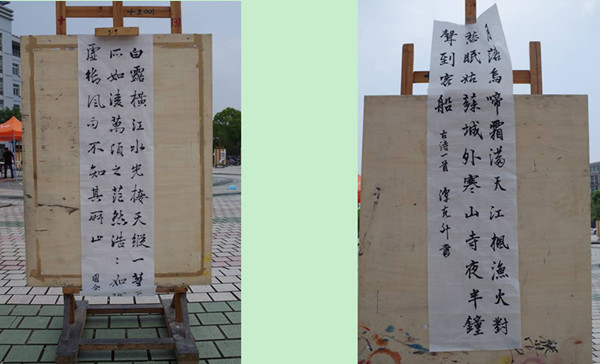 白露橫江水光接天縱一葦
所如淩萬頃之茫然浩〻如
虛御風而不知其所止
月落烏啼霜滿天江楓漁火對
愁眠姑蘇城外寒山寺夜半鐘
聲到客船
古詩一首
書